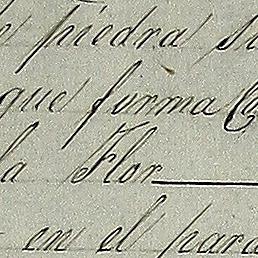 piedra
que forma
la Flor
en el para